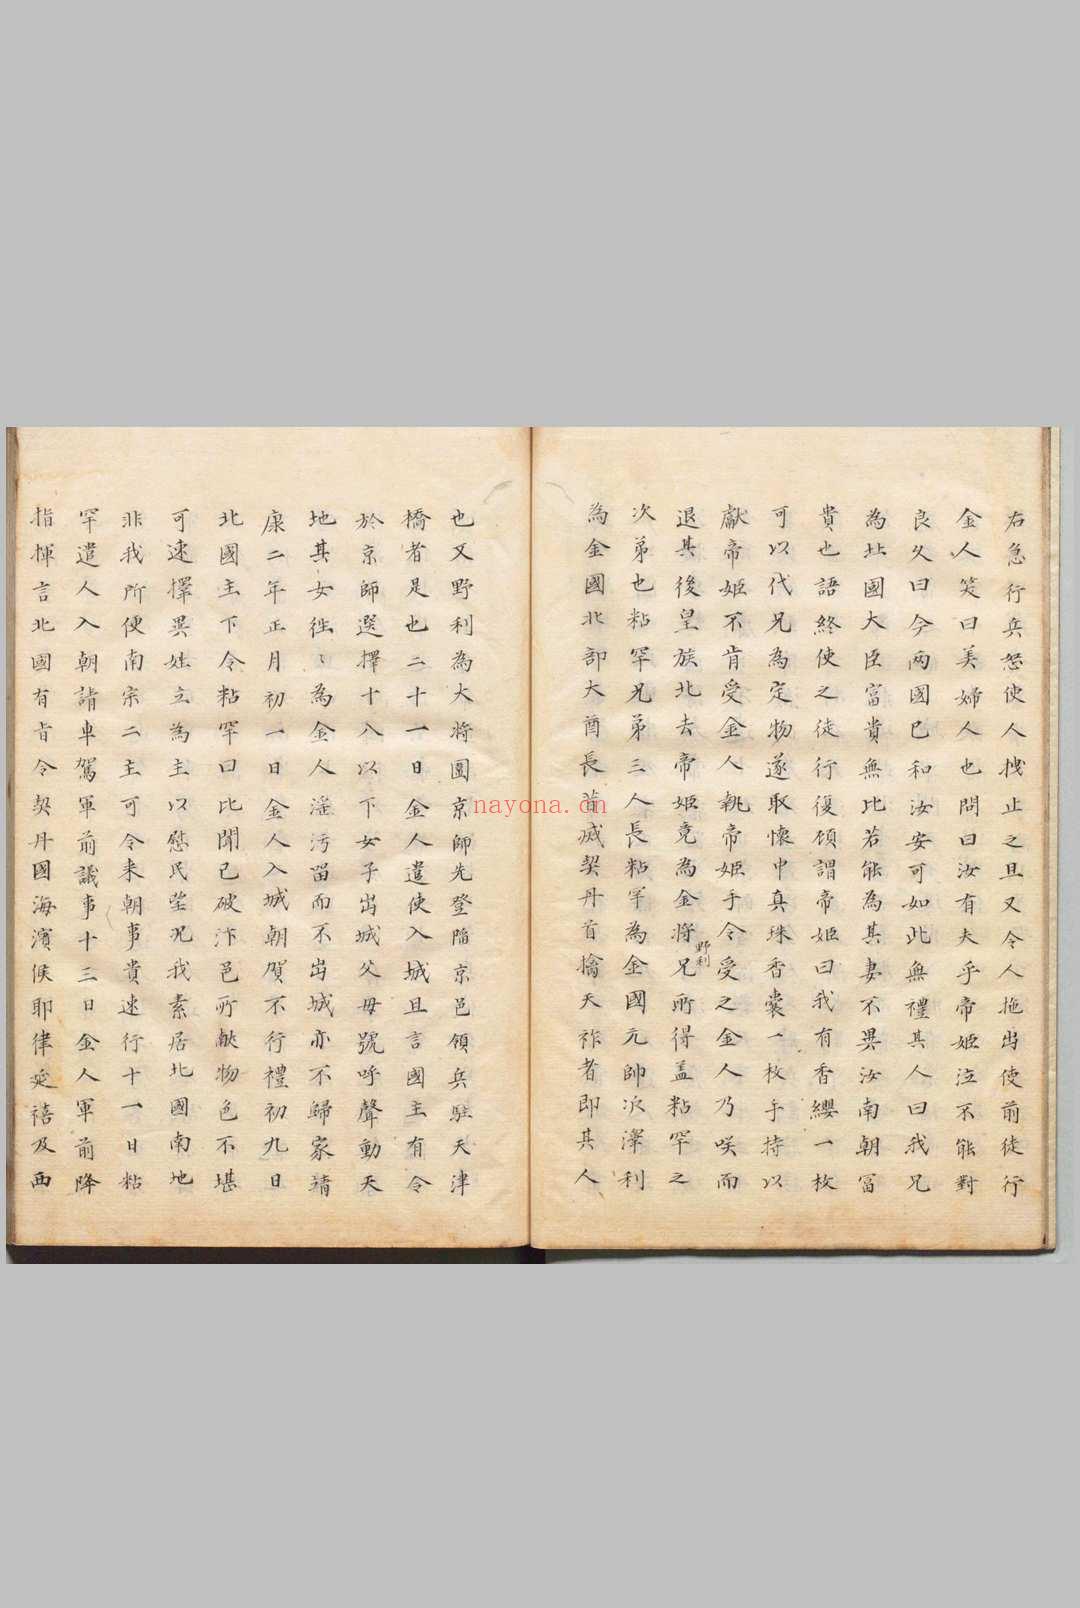 右急行兵怒使人拽止之且又令人拖出使前徒行
金人笑曰美婦人也問曰汝有夫乎帝姬泣不能對
良久曰今兩國已和汝安可如此無禮其人曰我兄
為北國大臣富貴無比若能為其妻不異汝南朝冨
貴也語終使之徒行復顧謂帝姬曰我有香纓一枚
可以代兄為定物遂取懷中真珠香裳一枚手持以
獻帝姬不肯受金人執帝姬手令受之金人乃咲而
退其後皇族北去帝姬竟為金將兄野利所得盖粘罕之
次弟也粘罕兄弟三人長粘罕為金國元帥次澤利
為金國北部大酋長昔滅契丹首擒天祚者即其人
也又野利為大將圍京師先登陷京邑領兵駐天津
橋者是也二十一日金人遣使入城且言國主有令
於京師選擇十八以下女子出城父母號呼聲動天
地其女徃〻為金人滛污留而不出城亦不歸家靖
康二年正月初一日金人入城朝賀不行禮初九日
北國主下令粘罕曰比聞已破汴邑所献物色不堪
可速擇異姓立為主以慰民望况我素居北國南地
非我所便南宗二主可令来朝事貴速行十一日粘
罕遣人入朝請車駕軍前議事十三日金人軍前降
指揮言北國有旨令契丹國海濱侯耶律延禧及西
nayona.cn